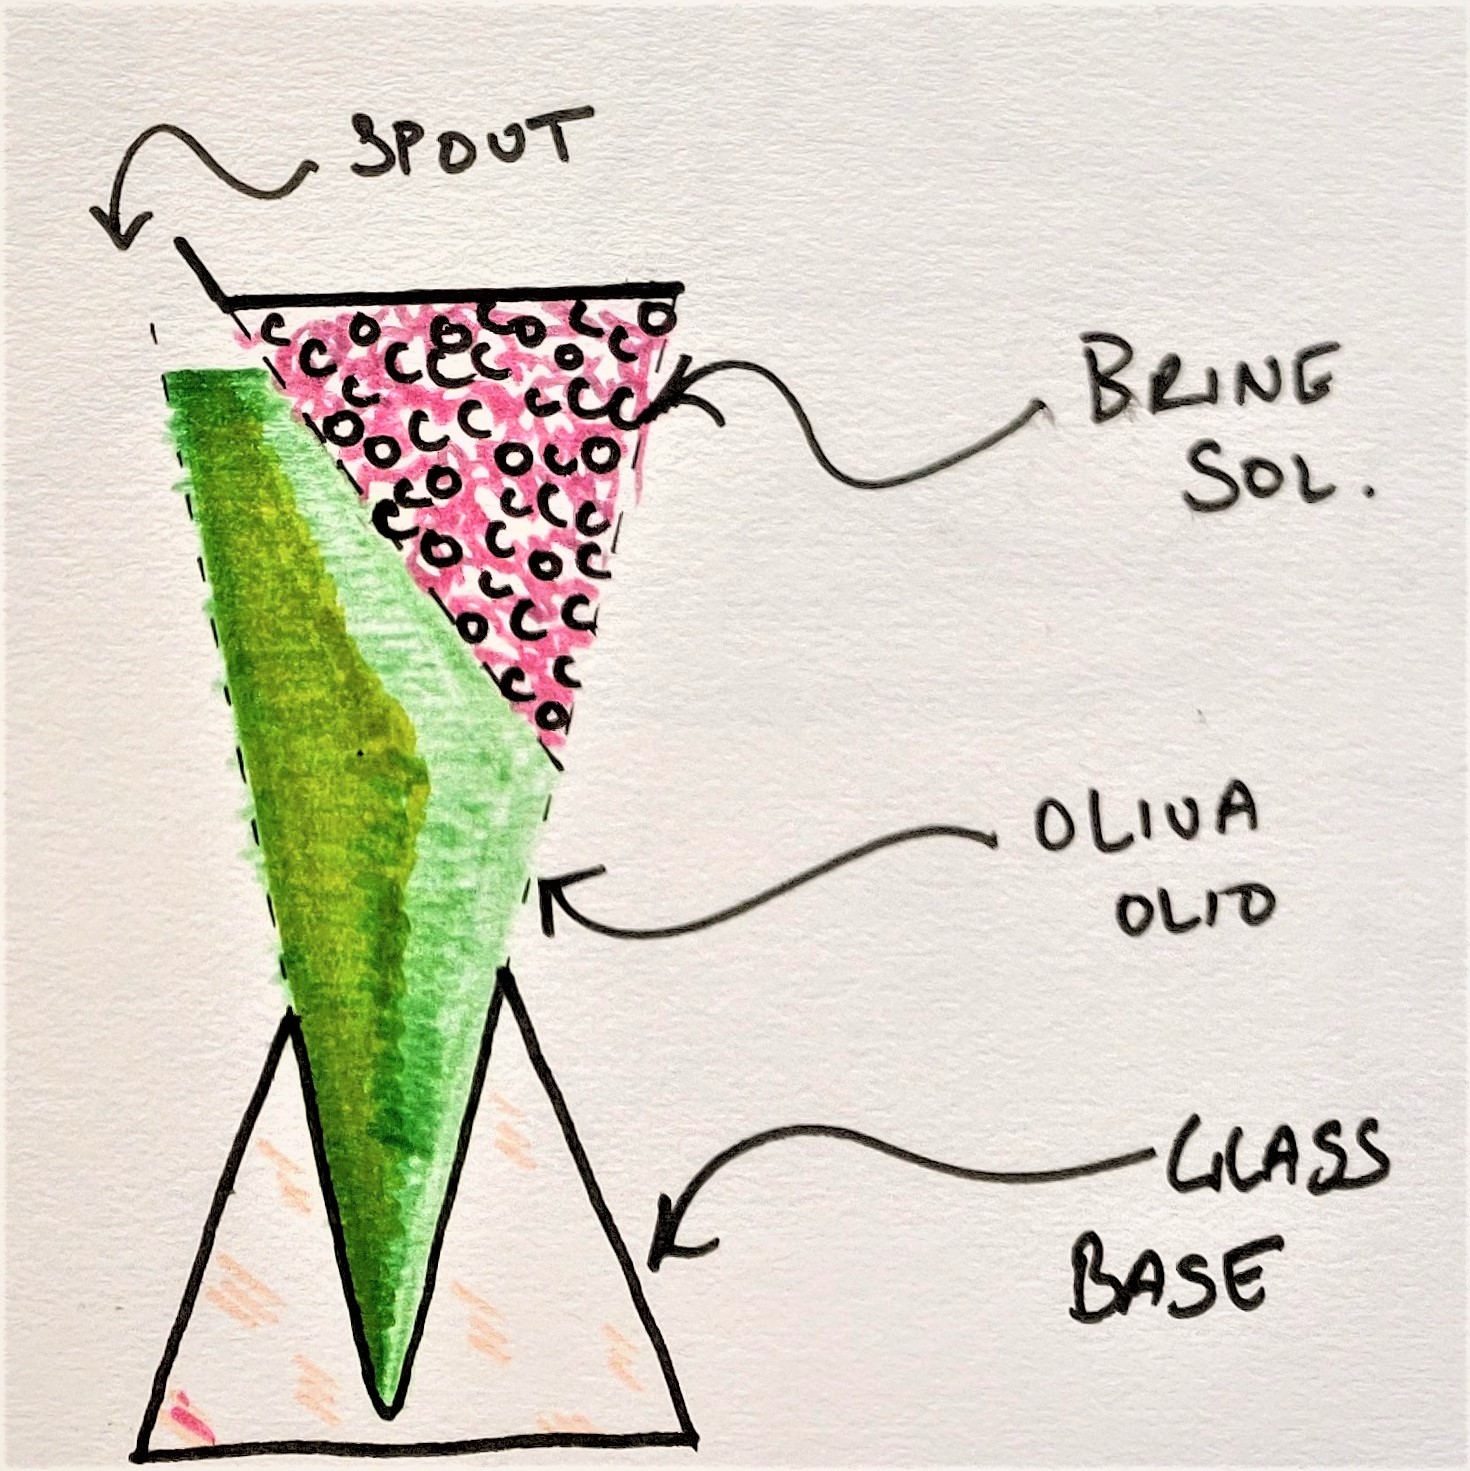 SPOUT
BRINE
SOL.
OLIVA
OLIO
GLASS
BASE